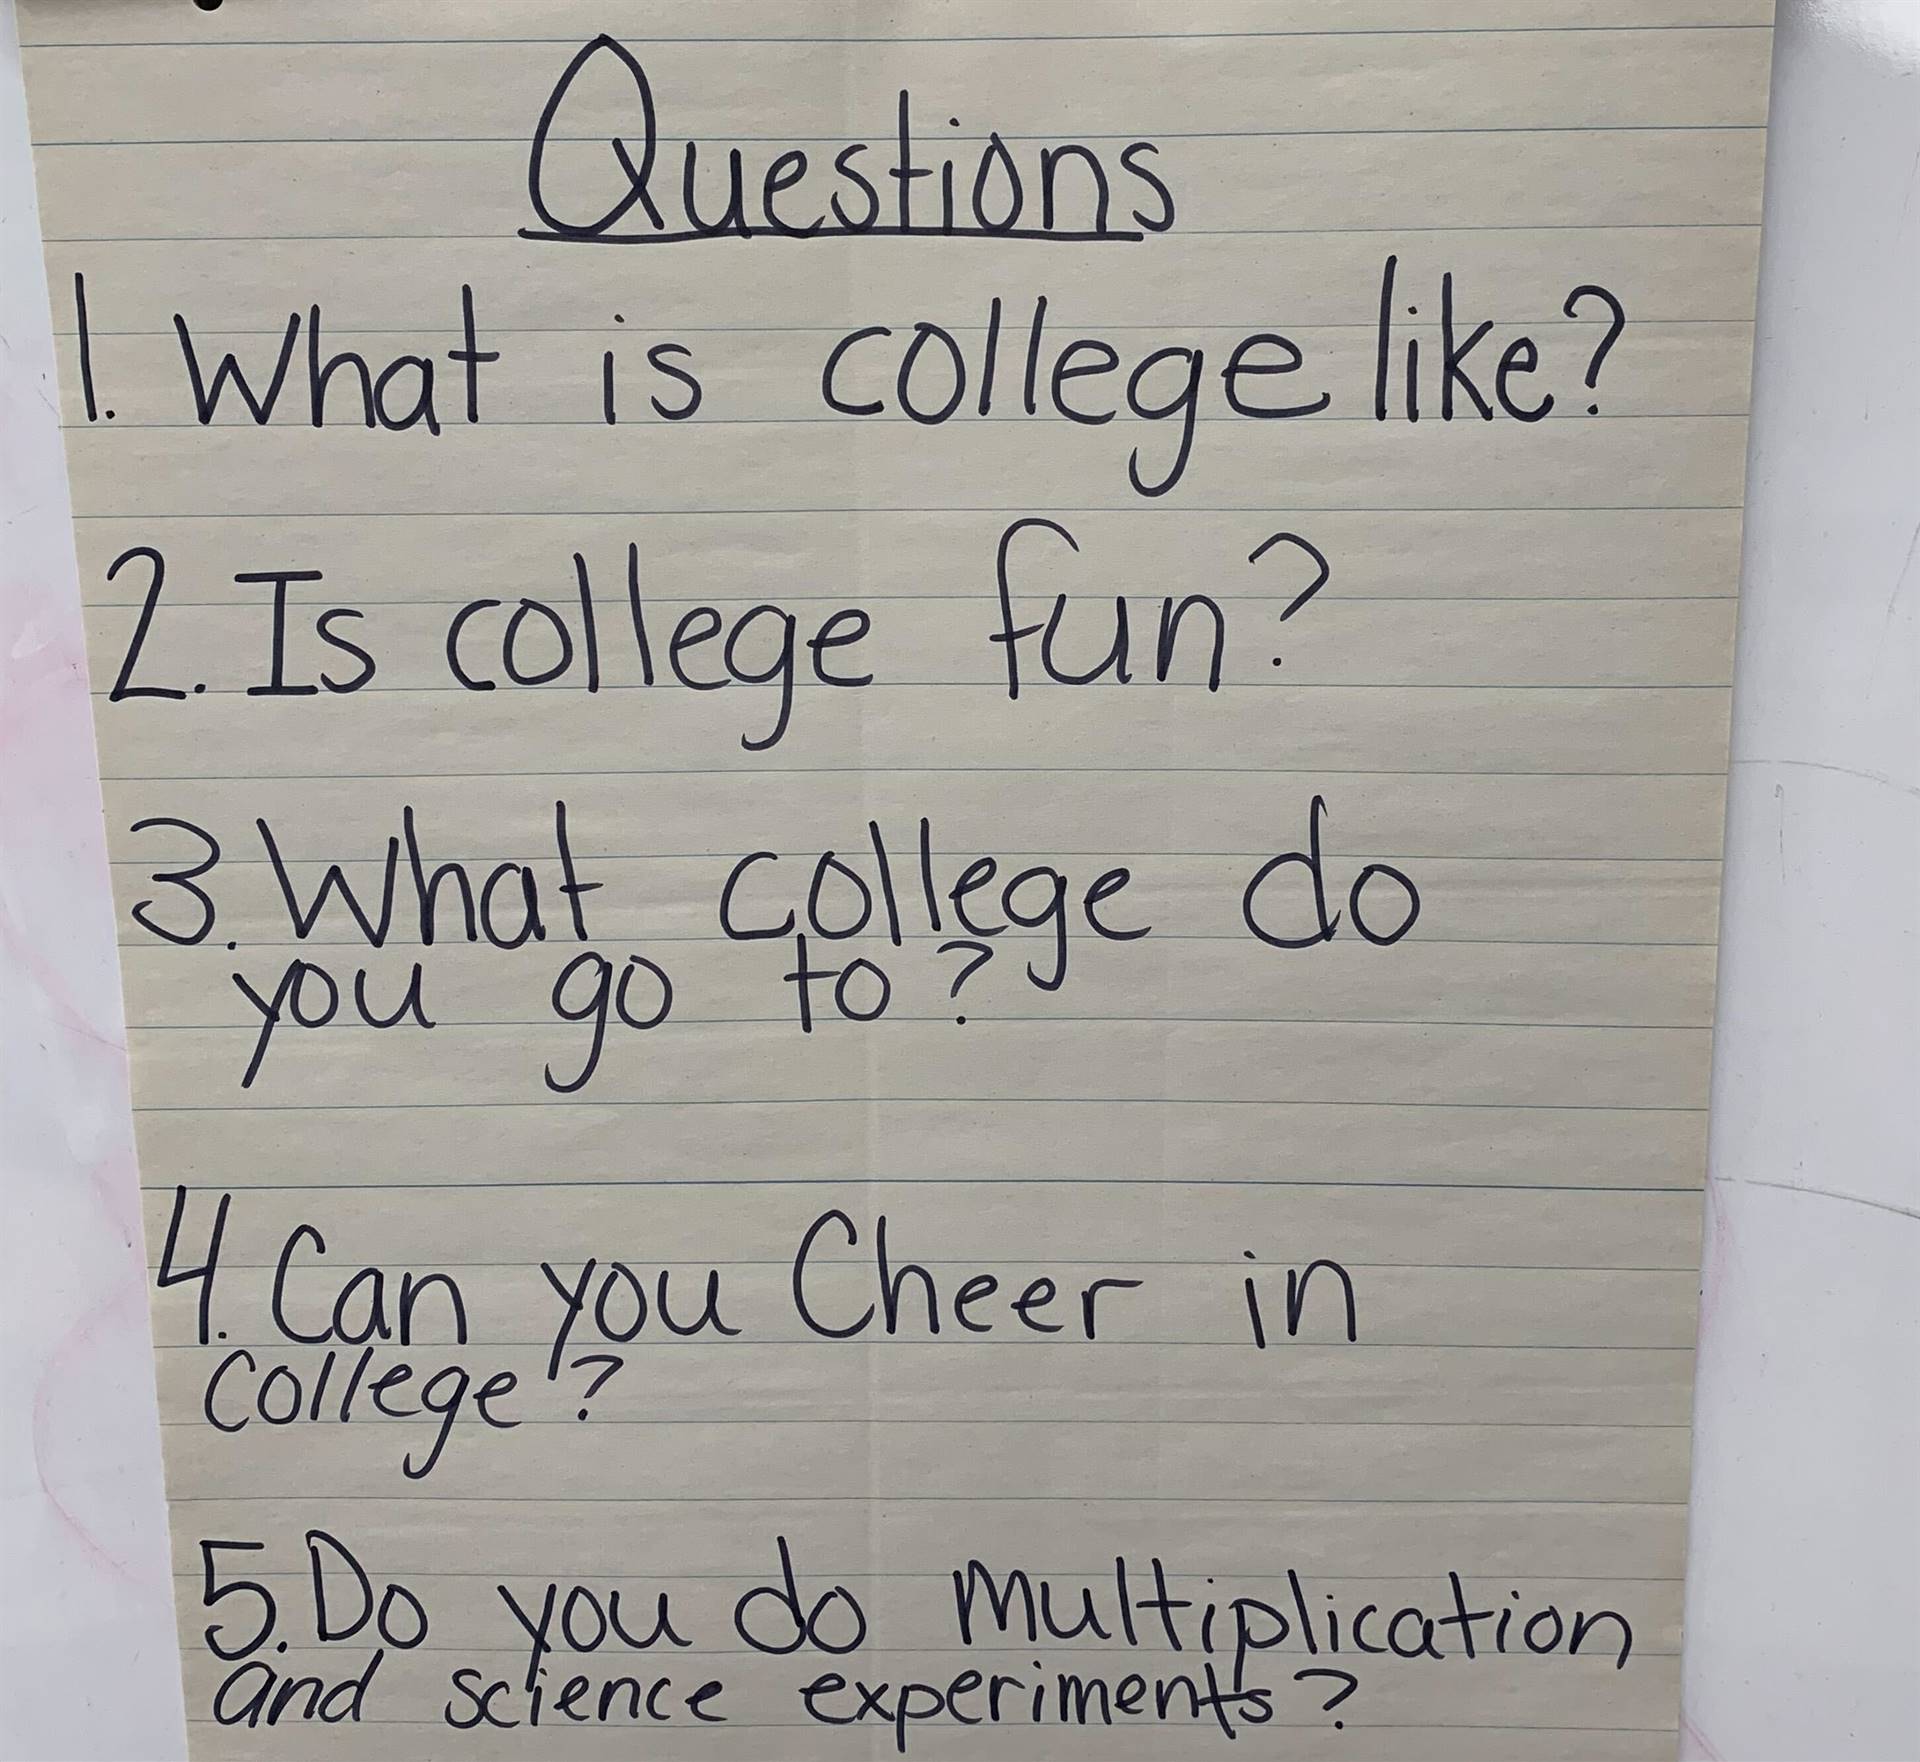 Questions
1. What is college like?
2. Is college fun?
3. What college do
you go to?
4. Can you Cheer in
college?
5. Do you do multiplication
and science experiments?